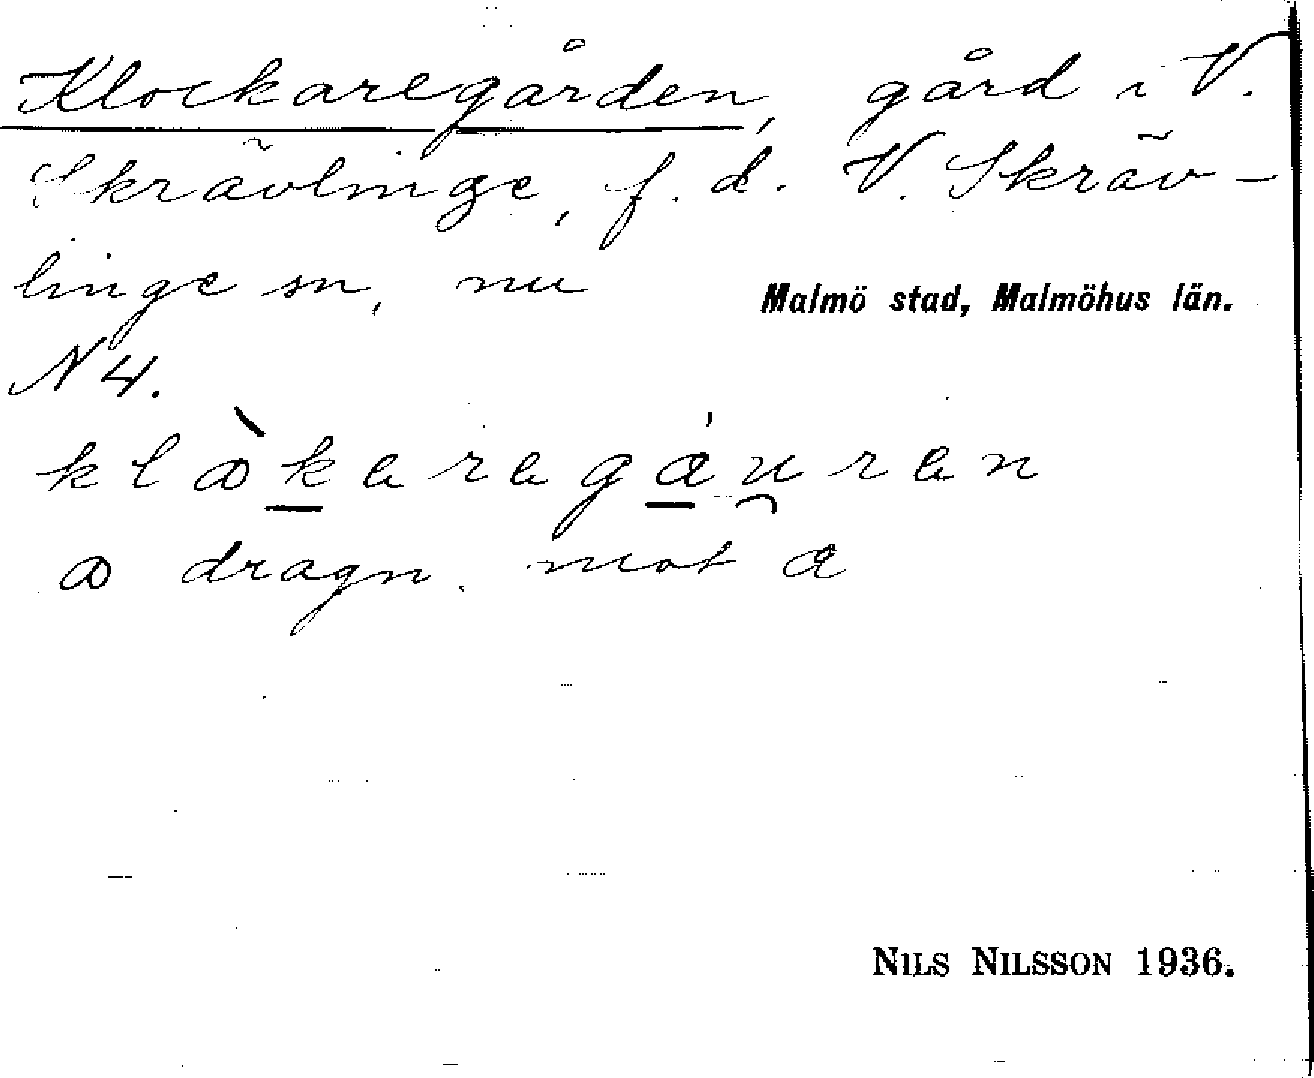 Klockaregården, gård i V.
Skrävlinge, f. d. V. Skräv-
linge sn, nu Malmö stad, Malmöhus län.
N 4.
dragn. mot
NILS NILSSON 1936.